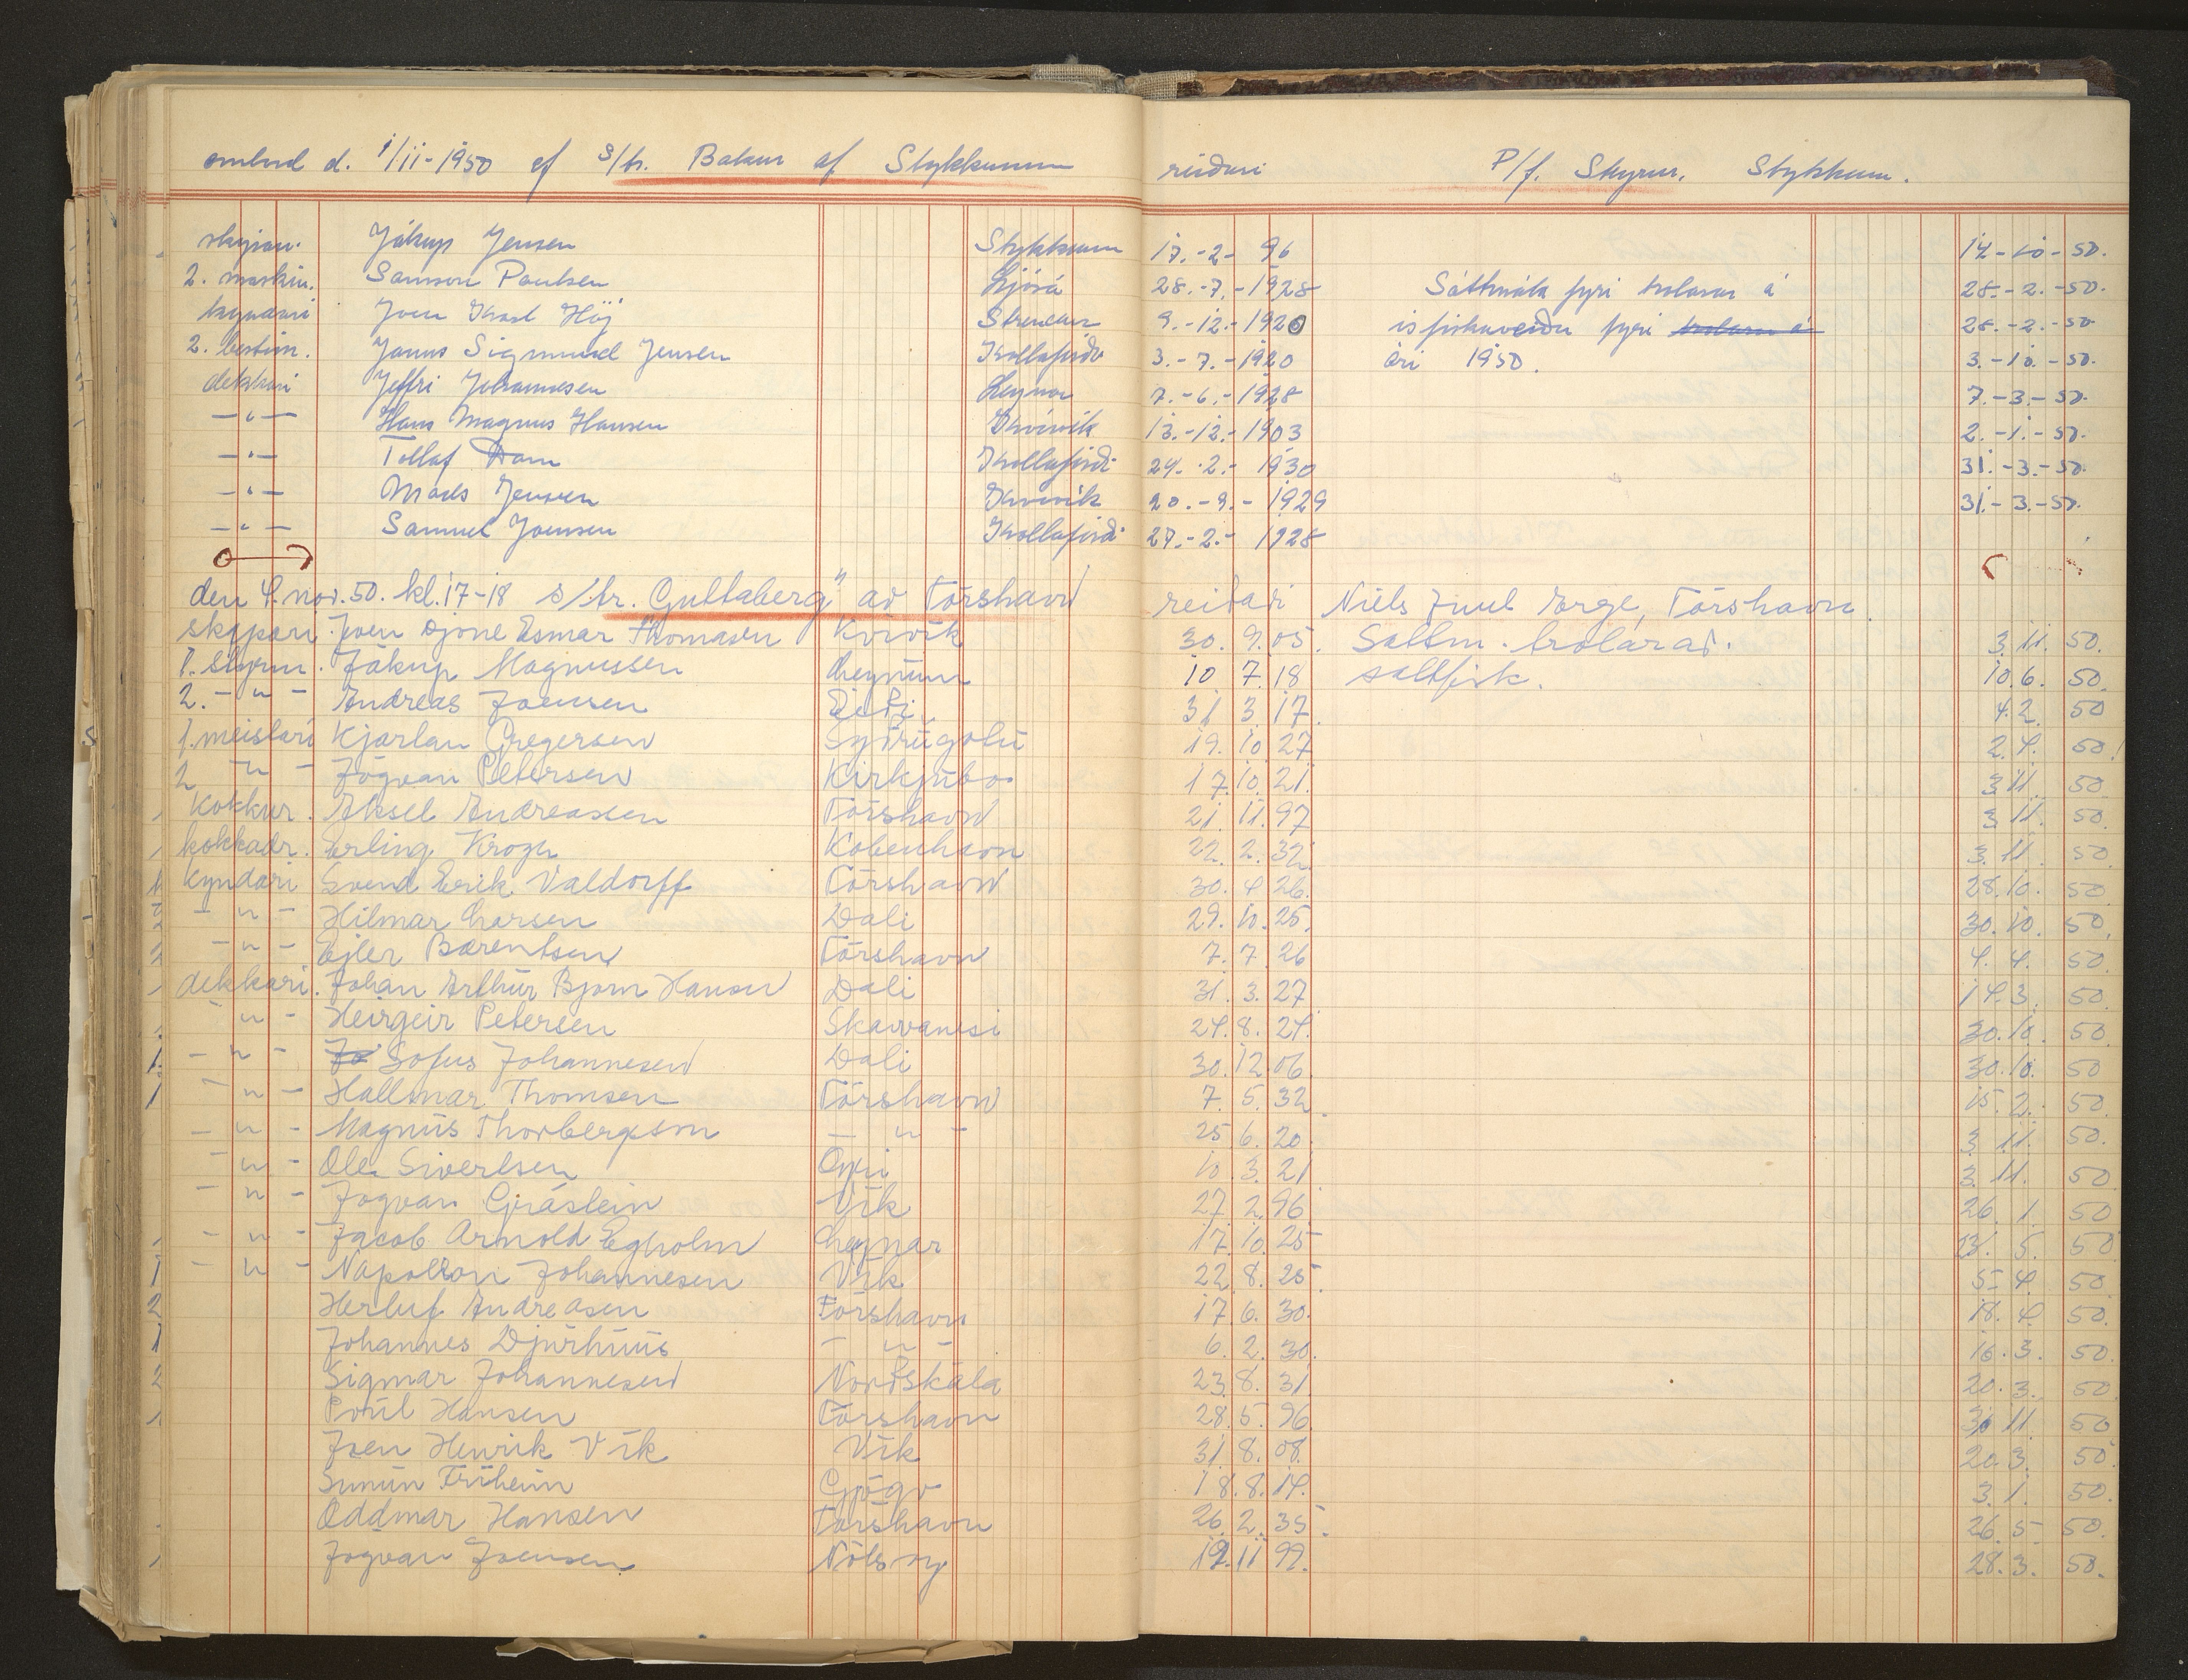 ombord d. 1/11-1950 ef s/tr. Bakur af Stykkunum reiðari P/f. Skyrur, Stykkum.
skipari. Jákup Jensen Stykkum 17.-2- 96 14-10-50.
2. maskin. Samson Poulsen Ljósá 28.-7.-1928 Sáttmála fyri trolarar á 28.-2.-50.
kyndari Joen Karl Höj Strendur 9.-12.-1920 ísfiskaveiðu fyri trolarar á 28.-2.-50
2. bestm. Janus Sigmund Jensen Kollafirði 3.-7.-1920 ári 1950. 3.-10.-50.
dekkari Jeffri Johannesen Leynar 7.-6.-1928 7.-3.-50.
-"- Hans Magnus Hansen Kvívík 13.-12.-1903 2.-1.-50.
-"- Tollaf Dam Kollafirði 24.-2.-1930 31.-3.-50.
-"- Mads Jensen Kvívík 20.-9.-1929 31.-3.-50.
-"- Samuel Joensen Kollafirði 27.-2.-1928
den 4. nov. 50. kl. 17-18 s/tr. Gullaberg" av Tórshavn reiðari Niels Juul Arge, Tórshavn.
skipari. Joen Djone Esmar Thomasen Kvívík 30. 9. 05. Sáttm. trolarar. 3. 11. 50.
1. stýrm. Jákup Magnussen Leynum 10 7. 18 saltfisk. 10. 6. 50.
2. -"- Andreas Joensen Eiði 31 3. 17. 4. 2. 50
1. meistari Kjartan Gregersen Syðrugøtu 19. 10 27 2. 4. 50.
2 -"- Jógvan Petersen Kirkjubø 17. 10. 21. 3 11. 50
Kokkur. Aksel Andreasen Tórshavn 21. 11. 97 3 11. 50.
kokkadr. Erling Krogh København 22. 2. 32 3. 11. 50
kyndari Svend Erik Valdorff Tórshavn 30. 4 26. 28. 10. 50
-"- Hilmar Larsen Dali 29. 10. 25. 30. 10. 50.
-"- Ejler Bærentsen Tórshavn 7. 7. 26 4. 4. 50.
dekkari. Johan Arthur Bjørn Hansen Dali 31. 3. 27 14. 3. 50.
-"- Heirgeir Petersen Skarvanesi 24. 8. 24. 30. 10. 50.
-"- Jo Sofus Johannesen Dali 30. 12. 06. 30. 10. 50
-"- Hallmar Thomsen Tórshavn 7. 5. 32. 15. 2. 50.
-"- Magnus Thorbergsson -"- 25 6. 20. 3 11. 50.
-"- Ole Sivertsen Oyri 10 3. 21 3. 11. 50
-"- Jógvan Gjáslein Vík 27 2. 96 26. 1. 50
-"- Jacob Arnold Egholm Leynar 17. 10. 25 5. 50
-"- Napoleon Johannesen Vík 22 8. 25. 5 4. 50
Herluf Andreasen Tórshavn 17 6. 30. 18. 4 50.
Johannes Djurhuus -"- 6. 2. 30. 16. 3. 50.
Sigmar Johannesen Norðskála 23. 8. 31 20. 3. 50
Poul Hansen Tórshavn 28. 5. 96 11 50
Joen Henrik Vík Vík 31. 8. 08. 20. 3. 50.
Sunnin Fríheim Gjógv 18. 8. 14. 3. 1. 50.
Oddmar Hansen Tórshavn 26. 2. 35. 26. 5 50.
Jógvan Joensen Nólsoy 19. 11 99. 28. 3. 50.